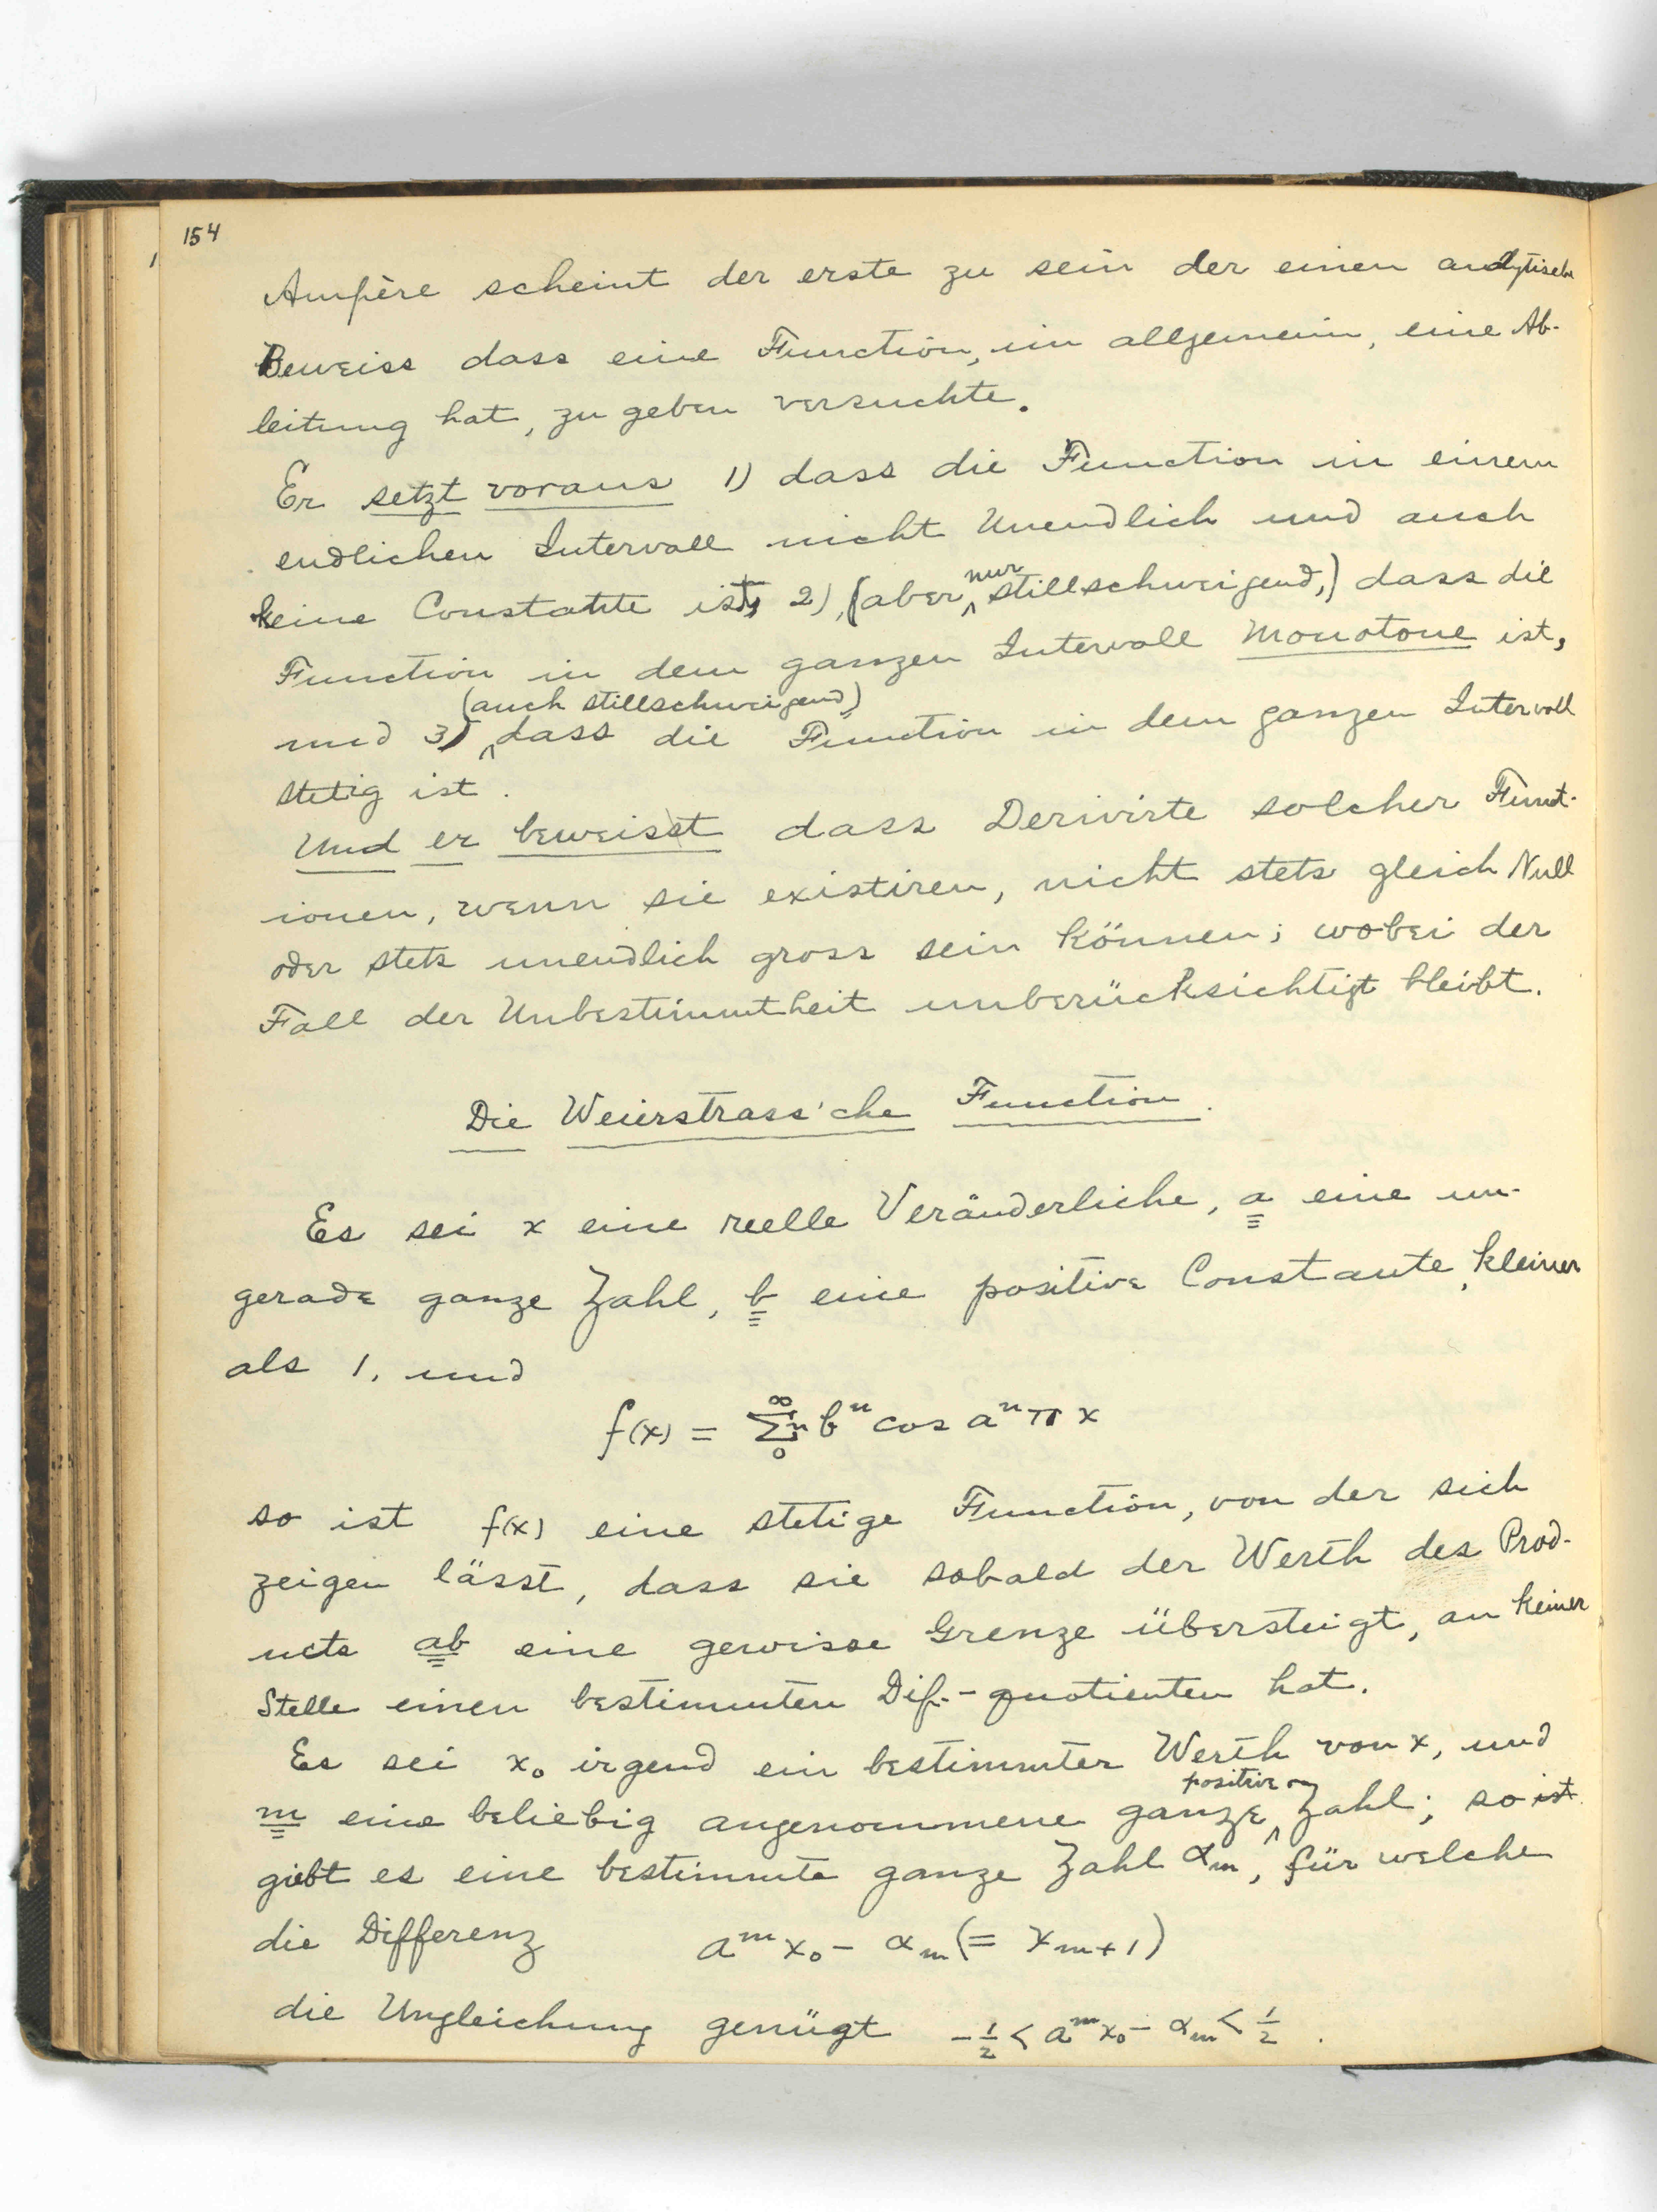 154
Ampère scheint der erste zu sein der einen analytische
Beweiss dass eine Function, im allgemein, eine Ab-
leitung hat, zu geben versuchte.
Er setzt voraus 1) dass die Function in einem
endlichen Intervall nicht Unendlich und auch
keine Constante ist, 2), (aber nur stillschweigend,) dass die
Function in dem ganzen Intervall Monotone ist,
und 3) (auch stillschweigend) dass die Function in dem ganzen Intervall
stetig ist.
Und er beweisst dass Derivirte solcher Funct-
ionen, wenn sie existiren, nicht stets gleich Null
oder stets unendlich gross sein können; wobei der
Fall der Unbestimmtheit unberücksichtigt bleibt.
Die Weierstrass'che Function.
Es sei x eine reelle Veränderliche, a eine un-
gerade ganze Zahl, b eine positive Constante, kleiner
als 1, und
f(x) = ∑₀^∞ n bⁿ cos aⁿ π x
so ist f(x) eine stetige Function, von der sich
zeigen lässt, dass sie sobald der Werth des Prod-
ucts ab eine gewisse Grenze übersteigt, an keiner
Stelle einen bestimmten Dif.-quotienten hat.
Es sei x₀ irgend ein bestimmter Werth von x, und
m eine beliebig angenommene ganze positive Zahl; so ist
giebt es eine bestimmte ganze Zahl αₘ, für welche
die Differenz aᵐx₀ - αₘ (= xₘ₊₁)
die Ungleichung genügt -½ < aᵐx₀ - αₘ < ½.